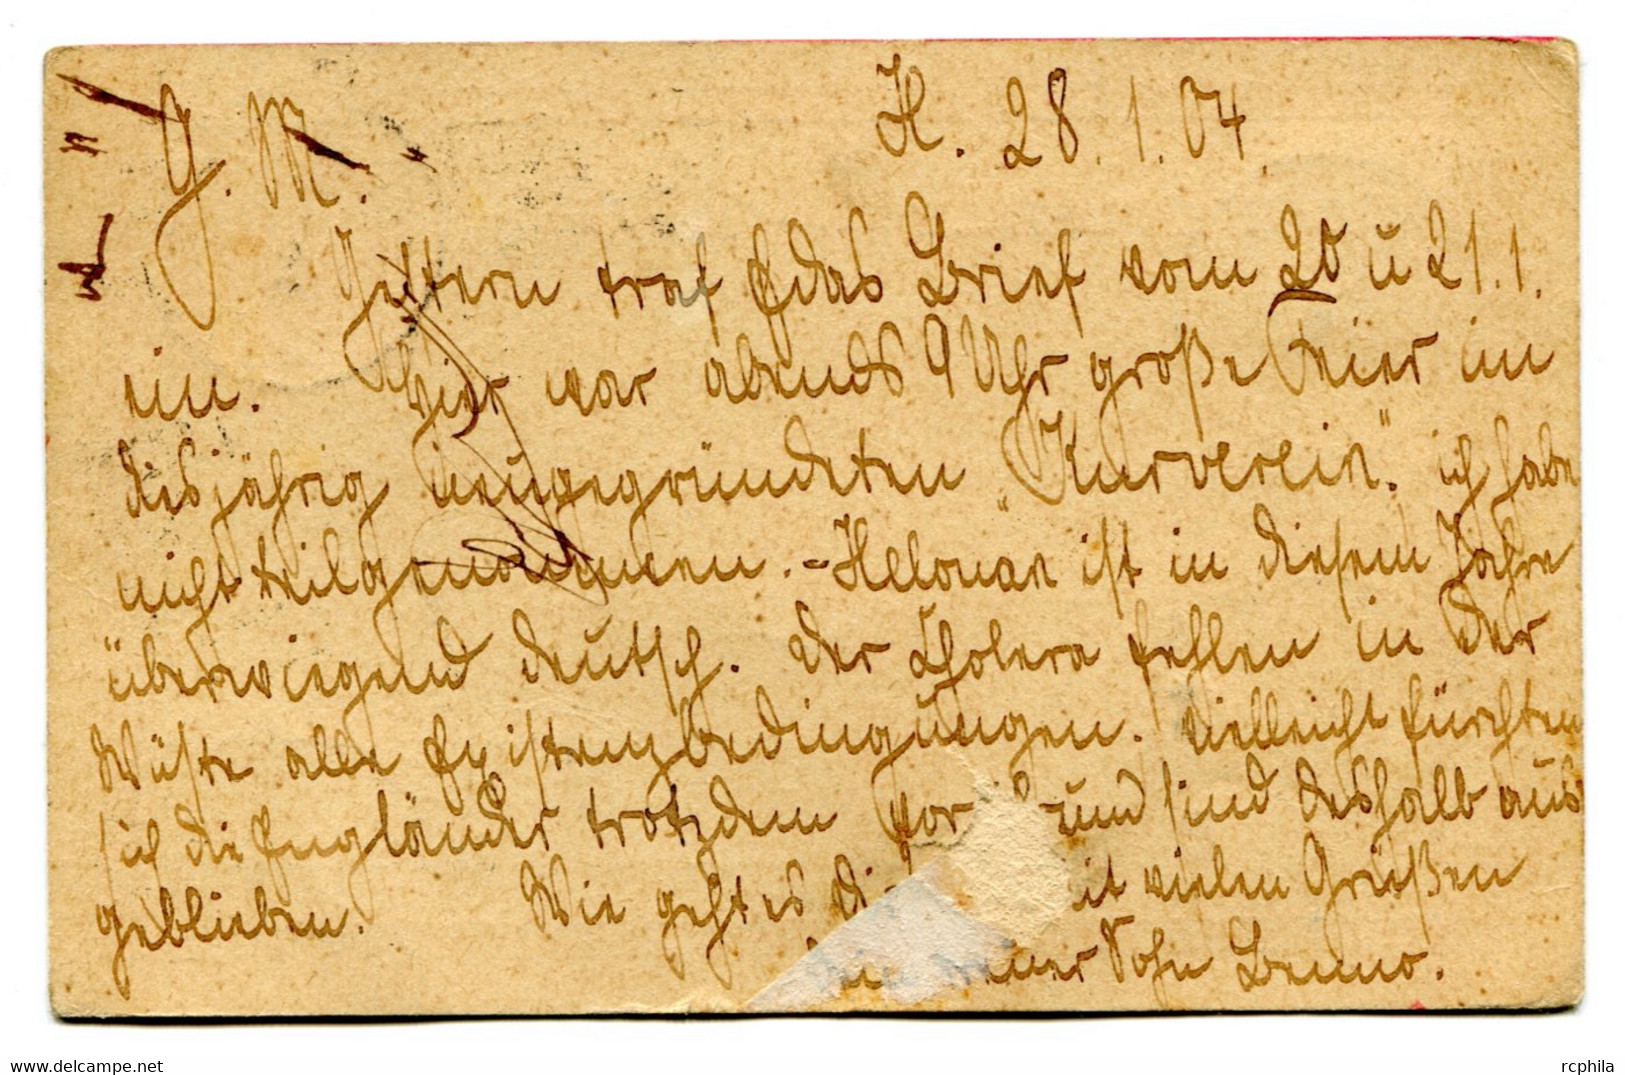 G. M. H. 28.1.04.
Gestern traf Brief vom 20 u 21.1.
ein. Hier war abends 9 Uhr große Feier im
diesjährig neugegründeten "Kurverein" ich habe
nicht teilgenommen. - Helouan ist in diesem Jahre
überwiegend deutsch. Der Cholera fehlen in der
Wüste alle Existenzbedingungen. Vielleicht fürchten
sich die Engländer trotzdem vor und sind deshalb aus
geblieben. Wie geht es mit vielen Grüßen
Sohn Benno.
rcphila